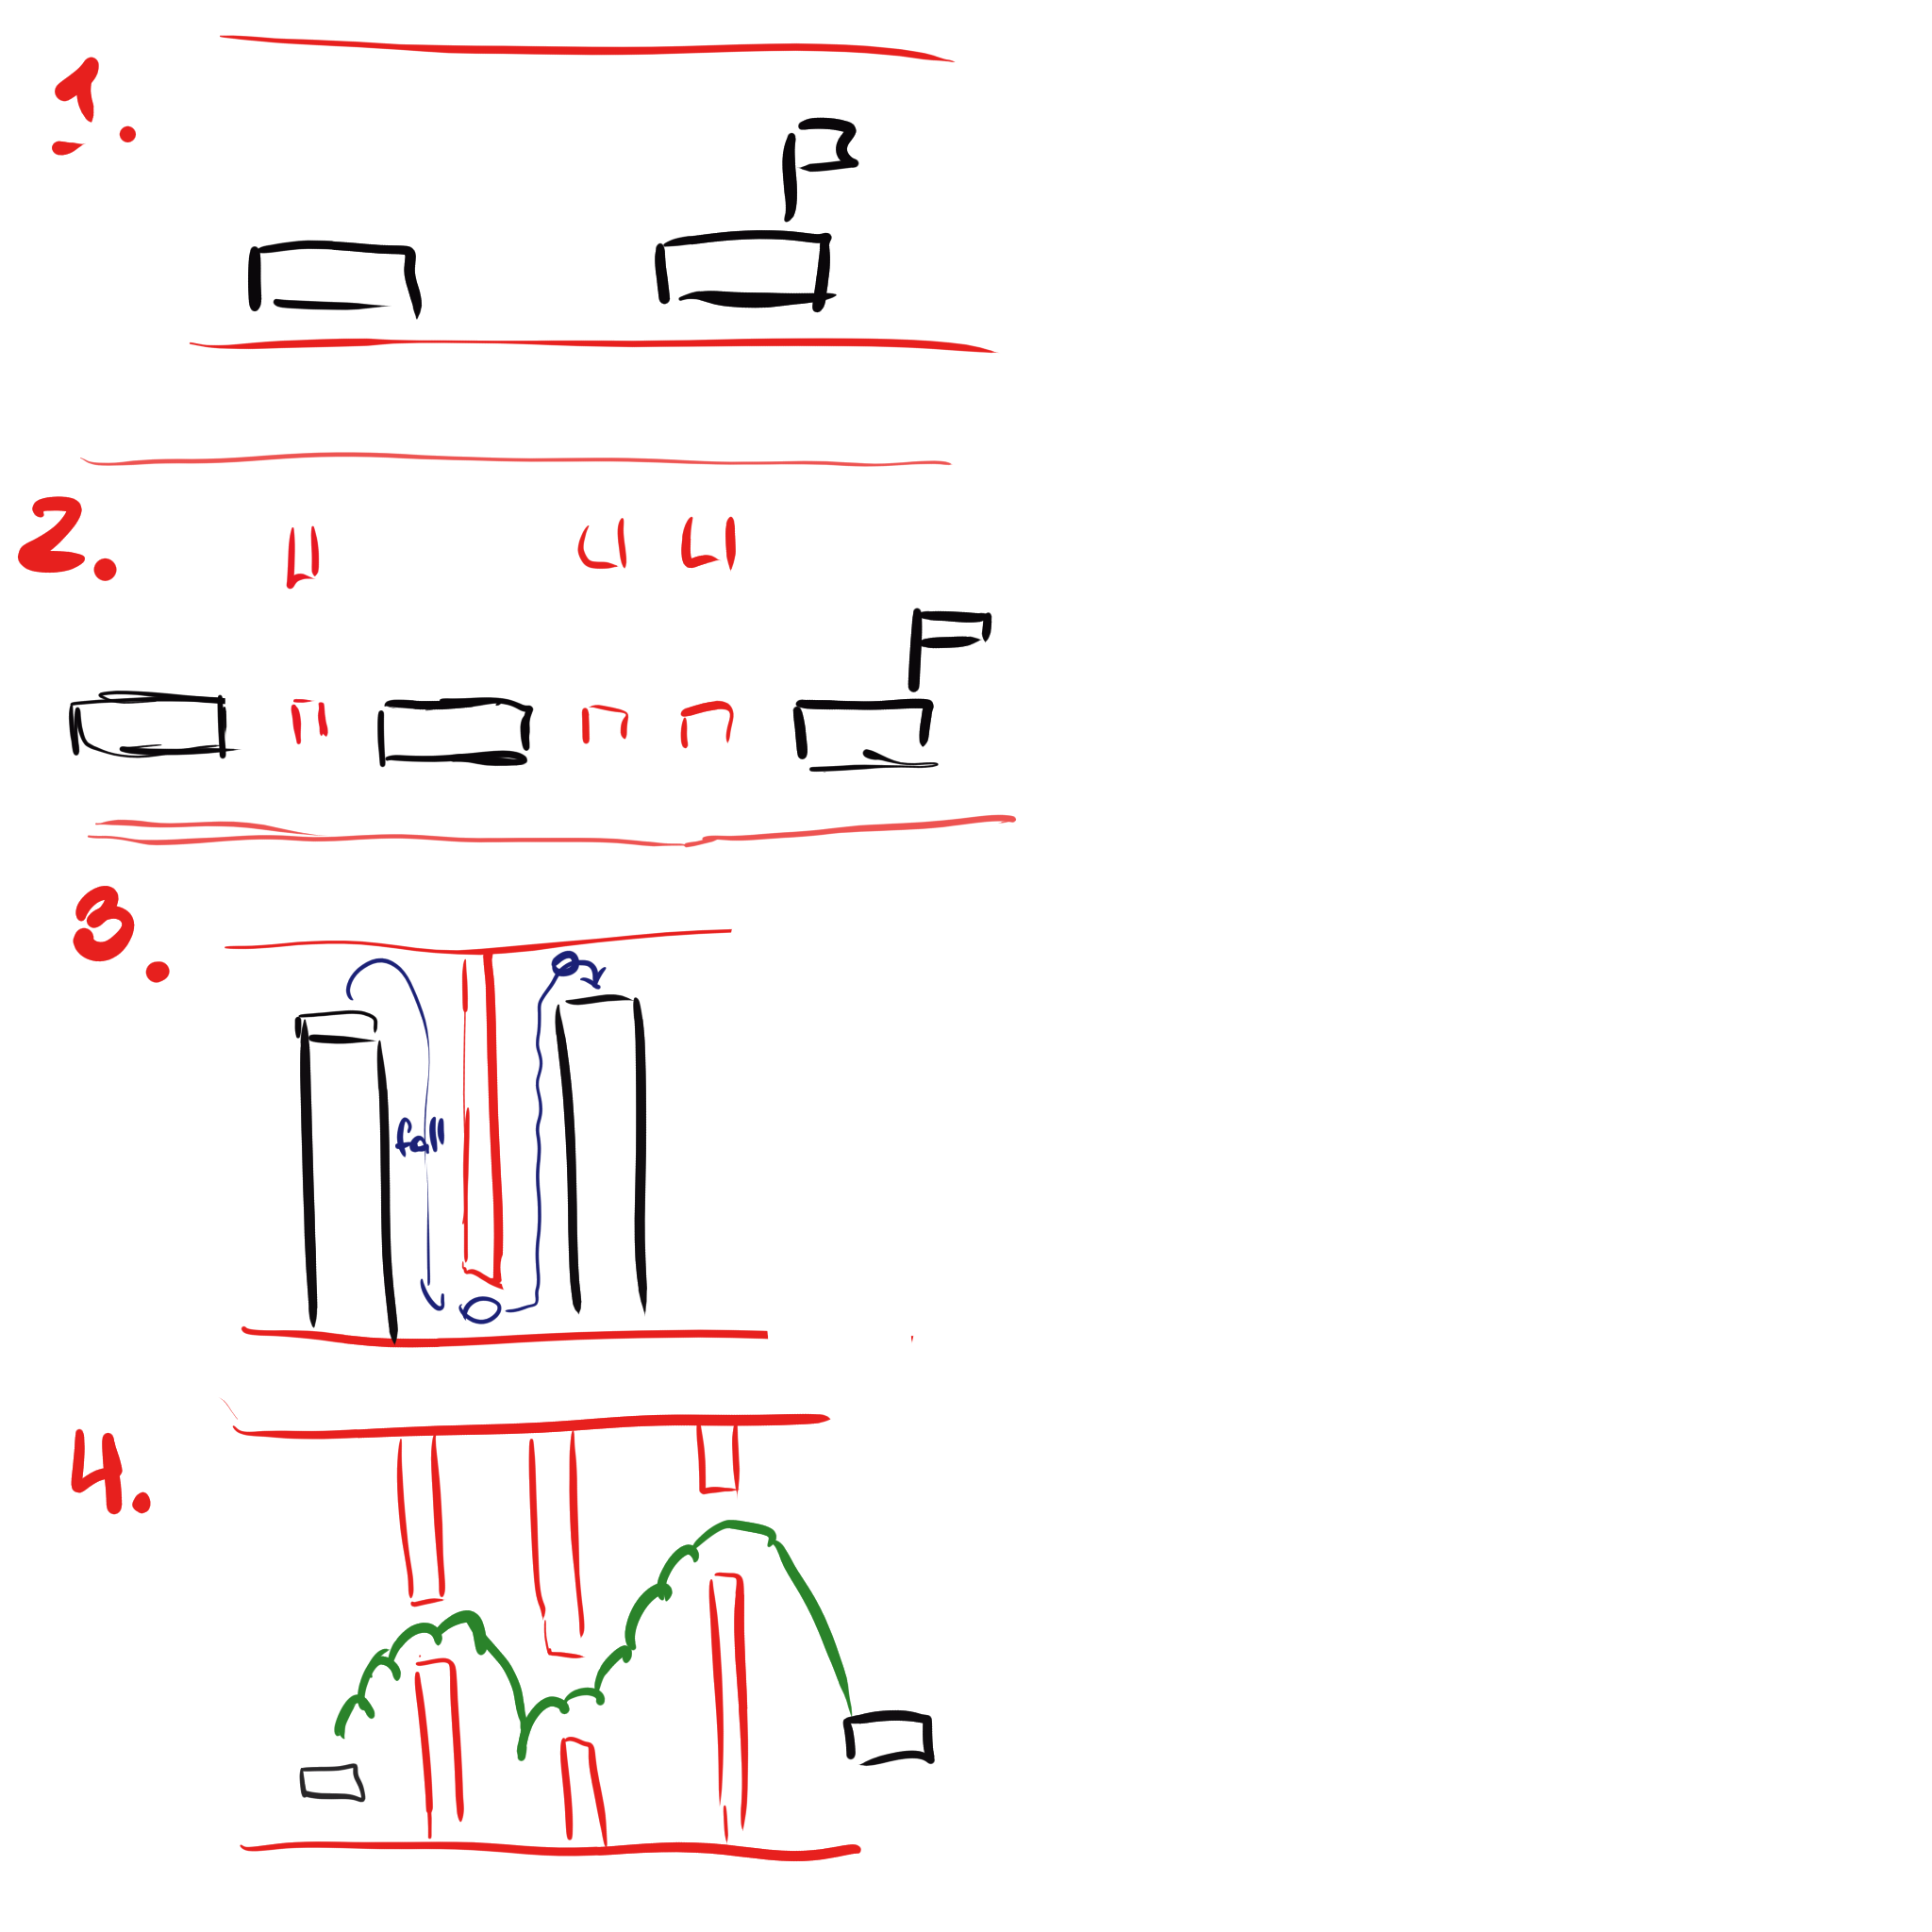 1.
2.
3.
fall
4.